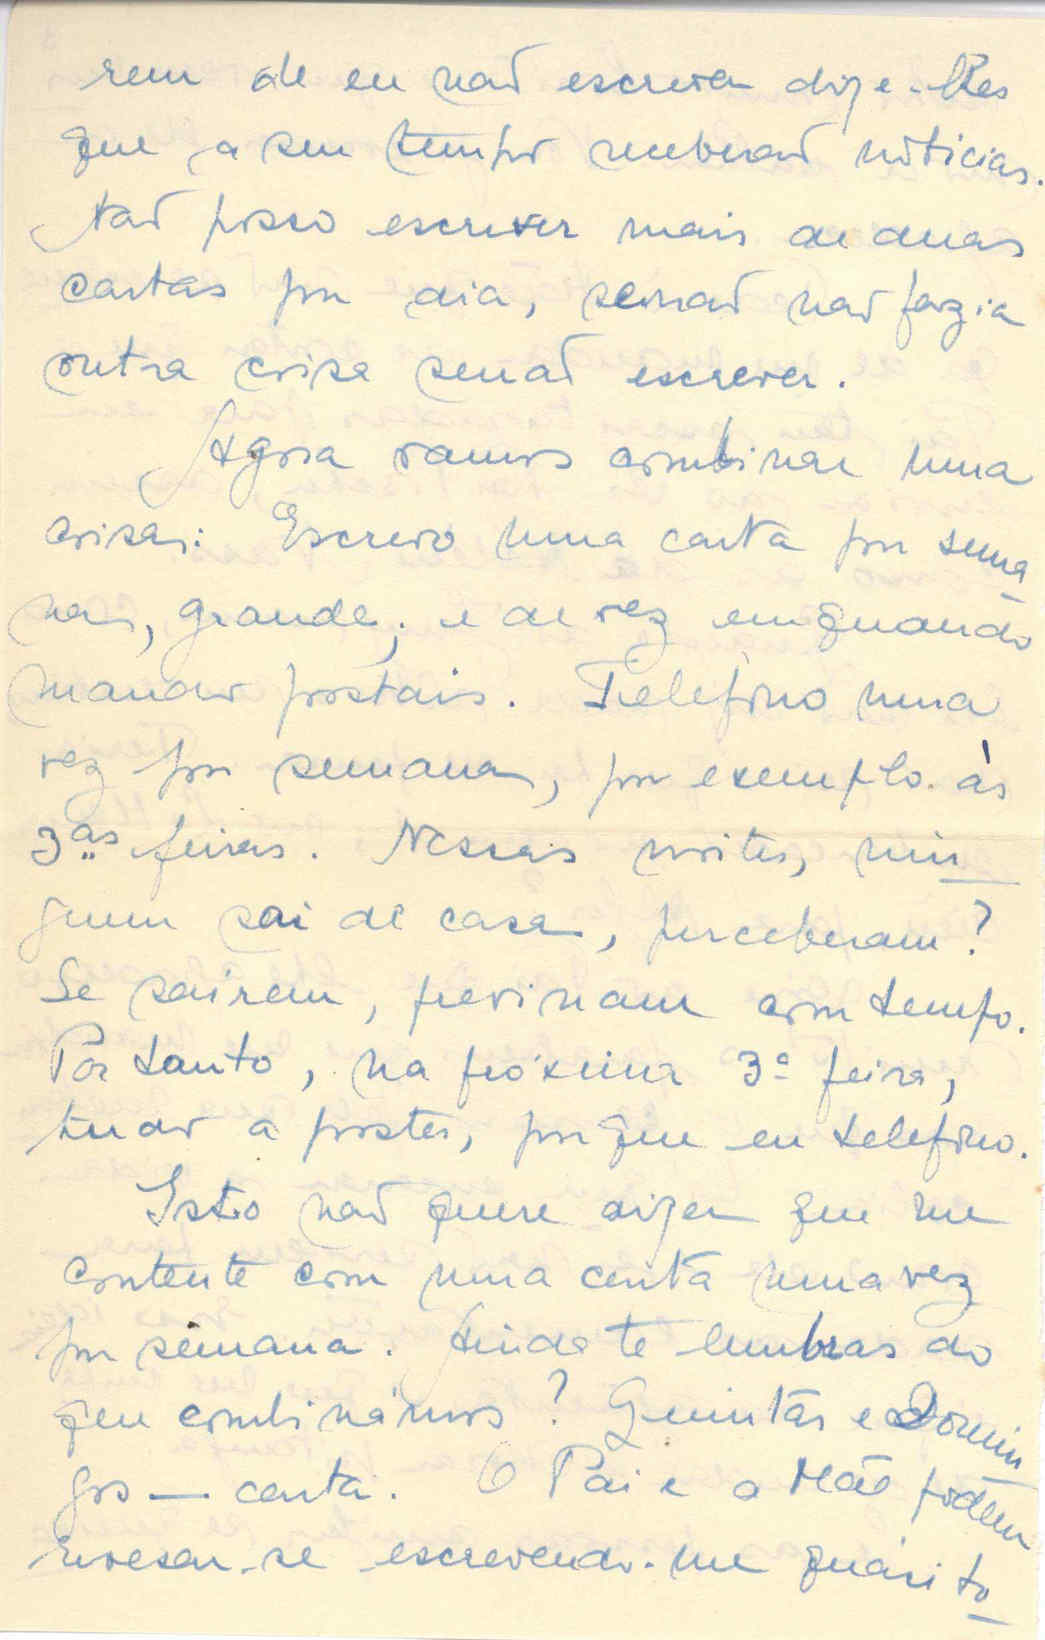 rem de eu não escrever dize-lhes
que a seu tempo receberão notícias.
Não posso escrever mais de duas
cartas por dia, senão não fazia
outra coisa senão escrever.
Agora vamos combinar uma
coisa: Escrevo uma carta por sema
na, grande, e de vez em quando
mando postais. Telefono uma
vez por semana, por exemplo às
3as feiras. Nessas noites, nin
guem sai de casa, perceberam?
Se sairem, previnam com tempo.
Portanto, na próxima 3a feira,
tudo a postos, porque eu telefono.
Isto não quere dizer que me
contente com uma carta uma vez
por semana. Ainda te lembras do
que combinámos? Quintas e Domin
gos — carta. O Pai e a Mãe podem
revesar-se escrevendo-me quási to